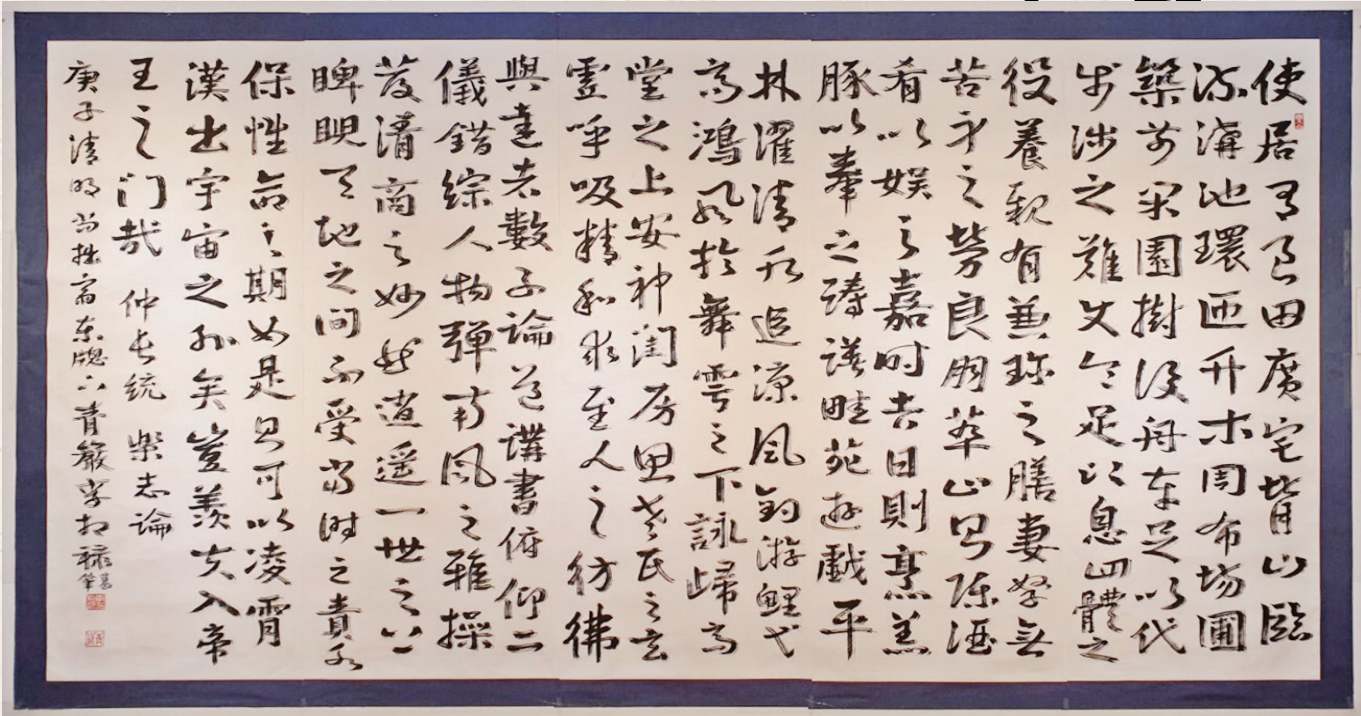 使居有良田廣宅背山臨
流溝池環匝竹木周布場圃
築前果園樹後舟車足以代
步涉之難使令足以息四體之
役養親有兼珍之膳妻孥無
苦身之勞良朋萃止則陳酒
肴以娛之嘉時吉日則烹羔
豚以奉之躊躇畦苑遊戲平
林濯清水追涼風釣游鯉弋
高鴻風於舞雩之下詠歸高
堂之上安神閨房思老氏之玄
虛呼吸精和求至人之彷彿
與達者數子論道講書俯仰二
儀錯綜人物彈南風之雅操
發清商之妙曲逍遙一世之上
睥睨天地之間不受當時之責永
保性命之期如是則可以凌霄
漢出宇宙之外矣豈羨夫入帝
王之门哉 仲長統 樂志論
庚子清明尚拙齋東牕下青巖李相